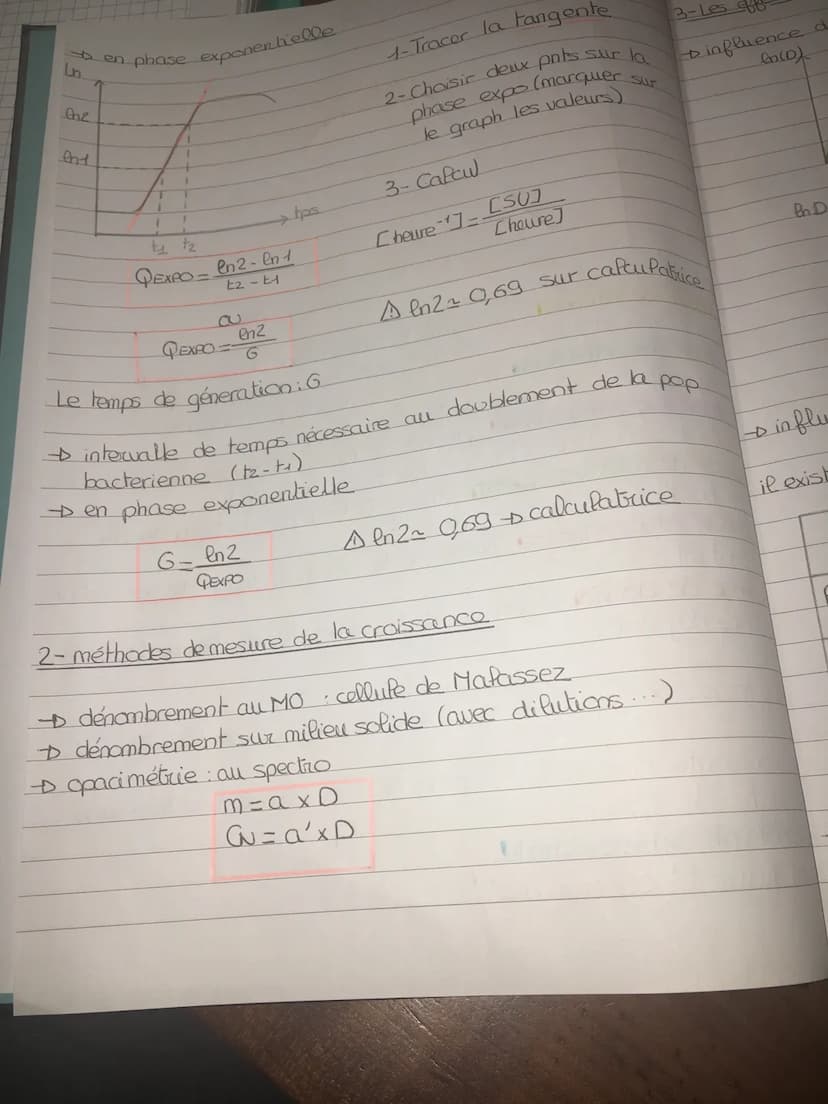 → en phase exponentielle
Ln
ln2
ln1
t1 t2
tps
QEXPO = ln2 - ln1 / t2 - t1
ou
QEXPO = ln2 / G
1-Tracer la tangente
2-Choisir deux pnts sur la
phase expo (marquer sur
le graph les valeurs)
3-Calcul
[heure⁻¹] = [SU] / [heure]
⚠ ln2 ≃ 0,69 sur calculatrice
Le temps de géneration : G
→ intervalle de temps nécessaire au doublement de la pop
bacterienne (t2-t1)
→ en phase exponentielle
G = ln2 / QEXPO
⚠ ln2 ≃ 0,69 → calculatrice
2- méthodes de mesure de la croissance
→ dénombrement au MO : cellule de Malassez
→ dénombrement sur milieu solide (avec dilutions...)
→ opacimétrie : au spectro
m = a x D
CN = a' x D
3-Les
→ influence
ln(D)
lnD
→ influ
il exist